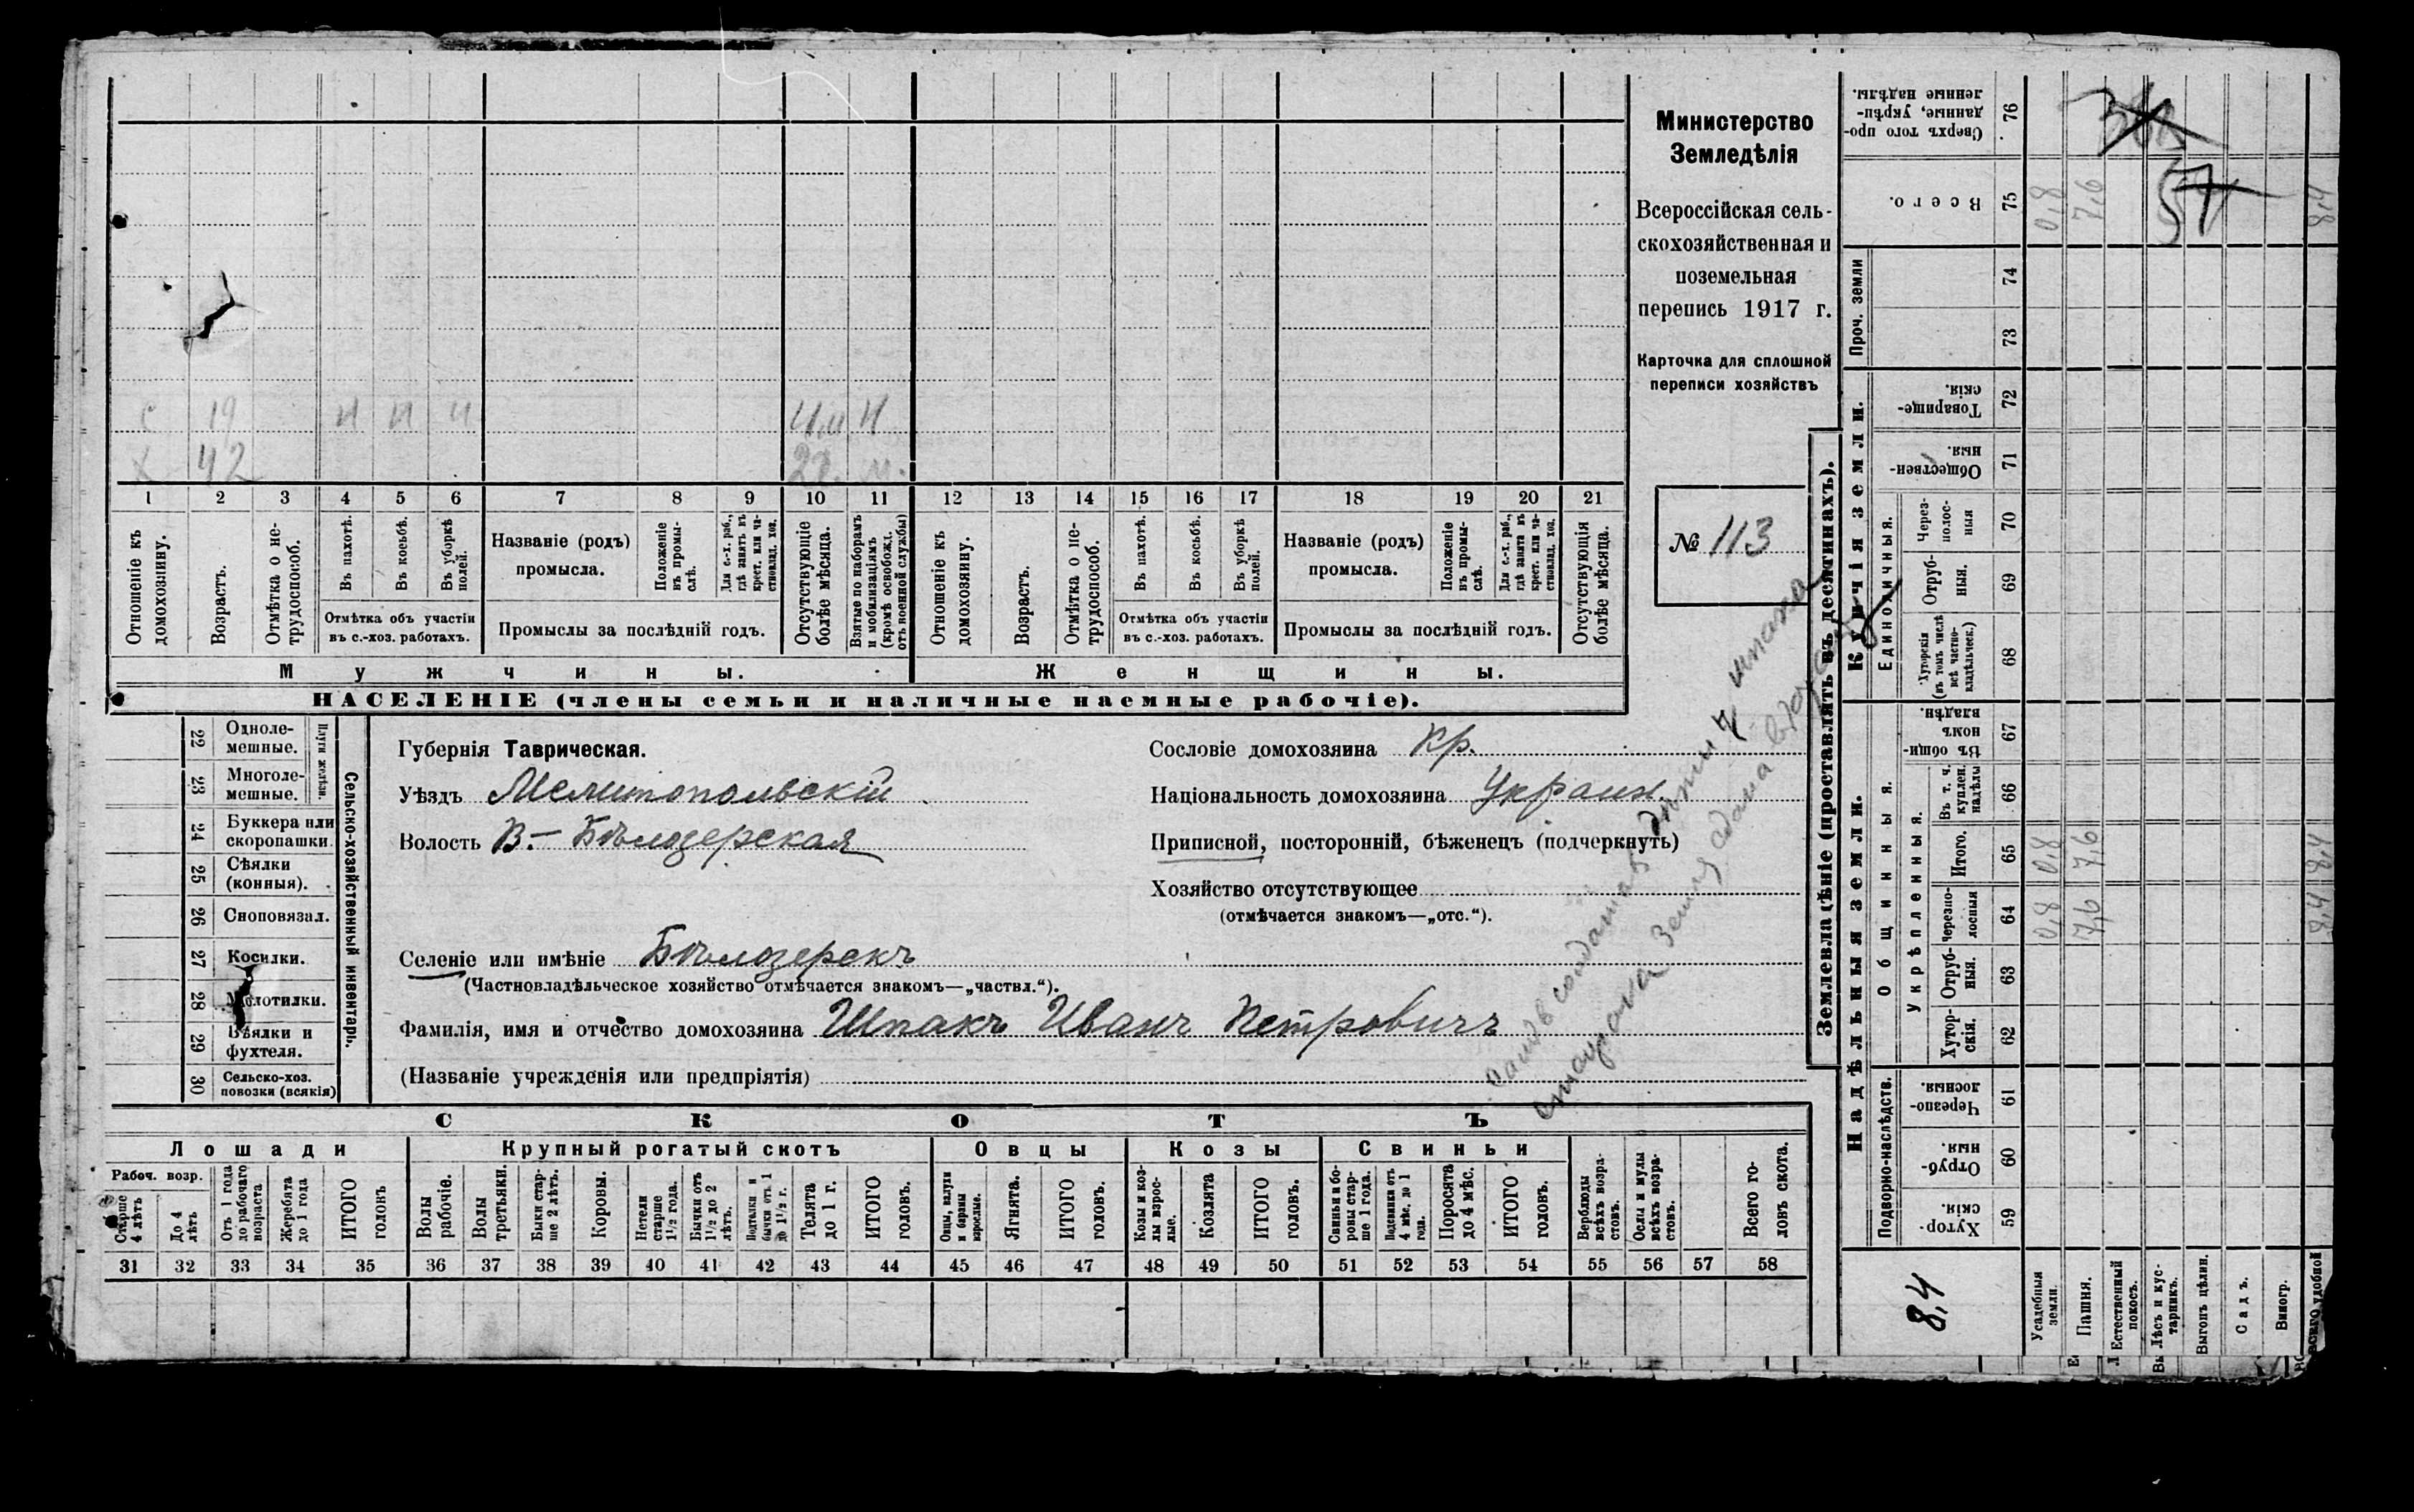 Министерство
Земледѣлія
Всероссійская сель-
скохозяйственная и
поземельная
перепись 1917 г.
Карточка для сплошной
переписи хозяйствъ
№ 113
с 19 и и и
х 42
1 2 3 4 5 6 7 8 9 10 11 12 13 14 15 16 17 18 19 20 21
Отношеніе къ домохозяину.
Возрастъ.
Отмѣтка о не-трудоспособ.
Въ пахотѣ.
Въ косьбѣ.
Въ уборкѣ полей.
Отмѣтка объ участіи
въ с.-хоз. работахъ.
Названіе (родъ)
промысла.
Положеніе въ промы-слѣ.
Для с.-х. раб., гдѣ занятъ въ крест. или ча-стновлад. хоз.
Промыслы за послѣдній годъ.
Отсутствующіе болѣе мѣсяца.
Взятые по наборамъ и мобилизаціямъ (кромѣ освобожд. отъ военной службы)
Отношеніе къ домохозяину.
Возрастъ.
Отмѣтка о не-трудоспособ.
Въ пахотѣ.
Въ косьбѣ.
Въ уборкѣ полей.
Отмѣтка объ участіи
въ с.-хоз. работахъ.
Названіе (родъ)
промысла.
Положеніе въ промы-слѣ.
Для с.-х. раб., гдѣ занята въ крест. или ча-стновлад. хоз.
Промыслы за послѣдній годъ.
Отсутствующія болѣе мѣсяца.
Мужчины.
Женщины.
НАСЕЛЕНІЕ (члены семьи и наличные наемные рабочіе).
22 Одноле-мешные.
23 Многоле-мешные.
24 Буккера или скоропашки.
25 Сѣялки (конныя).
26 Сноповязал.
27 Косилки.
28 Молотилки.
29 Вѣялки и фухтеля.
30 Сельско-хоз. повозки (всякія)
Сельско-хозяйственный инвентарь.
Губернія Таврическая.
Уѣздъ Мелитопольскій
Волость В.- Бѣлозерская
Селеніе или имѣніе Бѣлозерскъ
(Частновладѣльческое хозяйство отмѣчается знакомъ—„частвл.“).
Фамилія, имя и отчество домохозяина Шпакъ Иванъ Петровичъ
(Названіе учрежденія или предпріятія)
Сословіе домохозяина кр.
Національность домохозяина Украин
Приписной, посторонній, бѣженецъ (подчеркнуть)
Хозяйство отсутствующее
(отмѣчается знакомъ—„отс.“).
СКОТЪ
Лошади
Крупный рогатый скотъ
Овцы
Козы
Свиньи
Рабоч. возр.
Старше 4 лѣтъ
До 4 лѣтъ
Отъ 1 года до рабочаго возраста
Жеребята до 1 года
ИТОГО головъ
Волы рабочіе.
Волы третьяки.
Быки стар-ше 2 лѣтъ.
Коровы.
Нетели старше 1½ года.
Бычки отъ 1½ до 2 лѣтъ.
Подтелки и бычки отъ 1 до 1½ г.
Телята до 1 г.
ИТОГО головъ.
Овцы, валухи и бараны взрослые.
Ягнята.
ИТОГО головъ.
Козы и коз-лы взрос-лые.
Козлята
ИТОГО головъ.
Свиньи и бо-ровы стар-ше 1 года.
Подсвинки отъ 4 мѣс. до 1 года.
Поросята до 4 мѣс.
ИТОГО головъ.
Верблюды всѣхъ возра-стовъ.
Ослы и мулы всѣхъ возра-стовъ.
Всего го-ловъ скота.
31 32 33 34 35 36 37 38 39 40 41 42 43 44 45 46 47 48 49 50 51 52 53 54 55 56 57 58
Землевладѣніе (проставлять въ десятинахъ).
Надѣльныя земли.
Купчія земли.
Проч. земли
Подворно-наслѣдств.
Общинныя.
Укрѣпленныя.
Единоличныя.
Хутор-скія. 59
Отруб-ныя. 60
Черезпо-лосныя. 61
Хутор-скія. 62
Отруб-ныя. 63
Черезпо-лосныя 64 0,8 7,6 8,4
Итого. 65 0,8 7,6 8,4
Въ т. ч. куплен. надѣлы 66
Въ общи-номъ владѣн. 67
Хуторскія (въ томъ числѣ всѣ частно-владѣльческ.) 68
Отруб-ныя. 69
Через-полос-ныя 70
Обществен-ныя. 71
Товарище-скія. 72
73
74
Всего. 75 0,8 7,6 57 8,4
Сверхъ того про-данные, укрѣп-ленные надѣлы. 76
8,4
Усадебныя земли.
Пашня.
Естественный покосъ.
Лѣсъ и кус-тарникъ.
Выгонъ цѣлин.
Садъ.
Виногр.